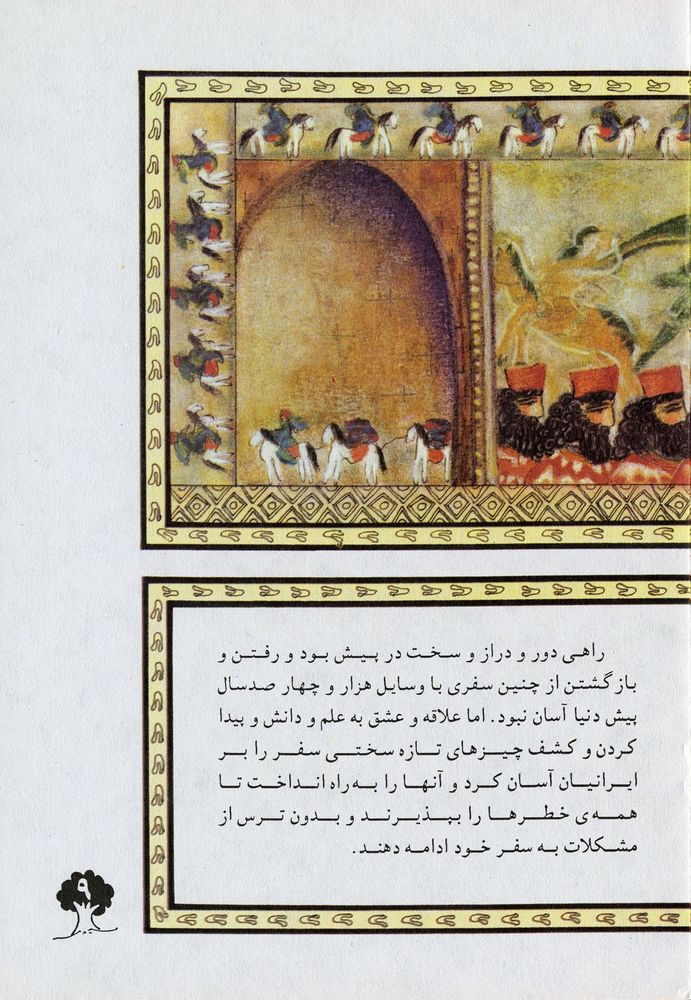 راهی دور و دراز و سخت در پیش بود و رفتن و
بازگشتن از چنین سفری با وسایل هزار و چهار صدسال
پیش دنیا آسان نبود. اما علاقه و عشق به علم و دانش و پیدا
کردن و کشف چیزهای تازه سختی سفر را بر
ایرانیان آسان کرد و آنها را به‌راه انداخت تا
همه‌ی خطرها را بپذیرند و بدون ترس از
مشکلات به سفر خود ادامه دهند.